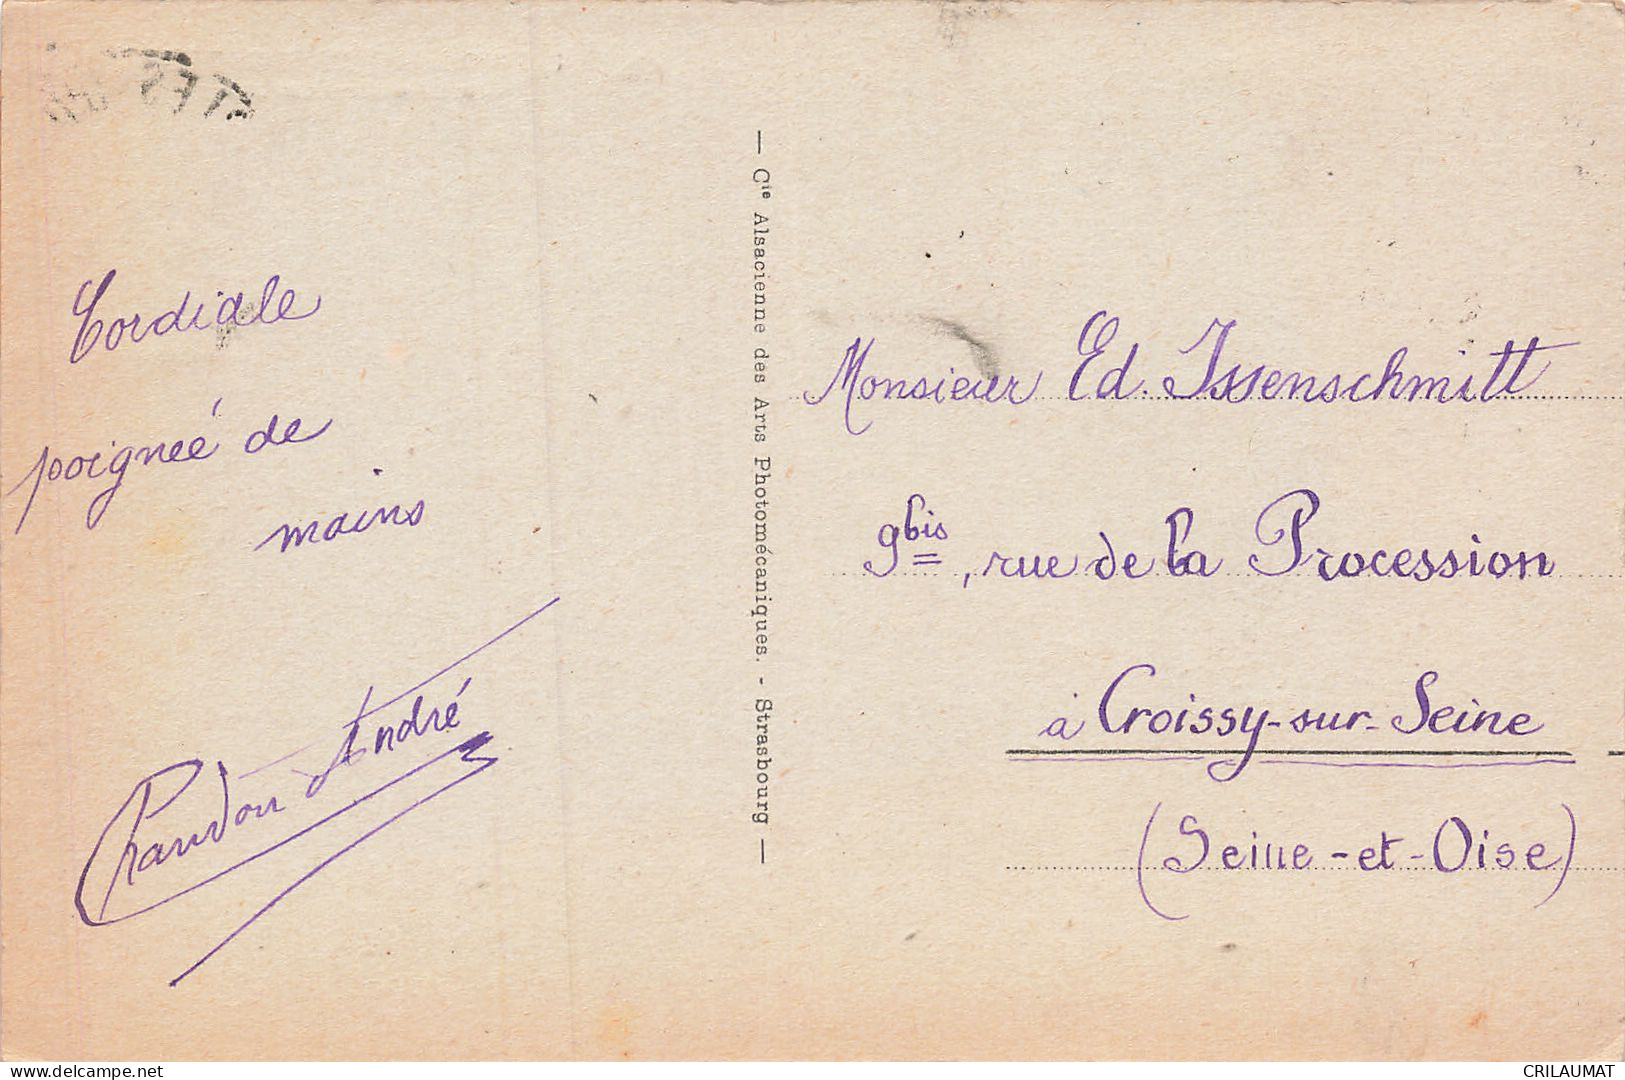 Cordiale
poigneé de
mains
Chaudon André
— Cie Alsacienne des Arts Photomécaniques. - Strasbourg —
Monsieur Ed. Issenschmitt
9bis, rue de la Procession
à Croissy-sur-Seine
(Seine-et-Oise)
delcampe.net
CRILAUMAT